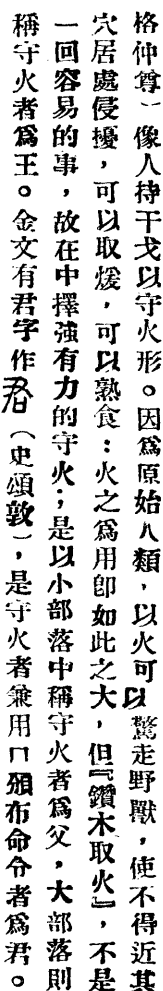 格仲尊）像人持干戈以守火形。因爲原始人類，以火可以驚走野獸，使不得近其
穴居處侵擾，可以取煖，可以熟食：火之爲用卽如此之大，但『鑽木取火』，不是
一回容易的事，故在中擇強有力的守火；是以小部落中稱守火者爲父，大部落則
稱守火者爲王。金文有君字作（史頌敦），是守火者兼用口頒布命令者爲君。